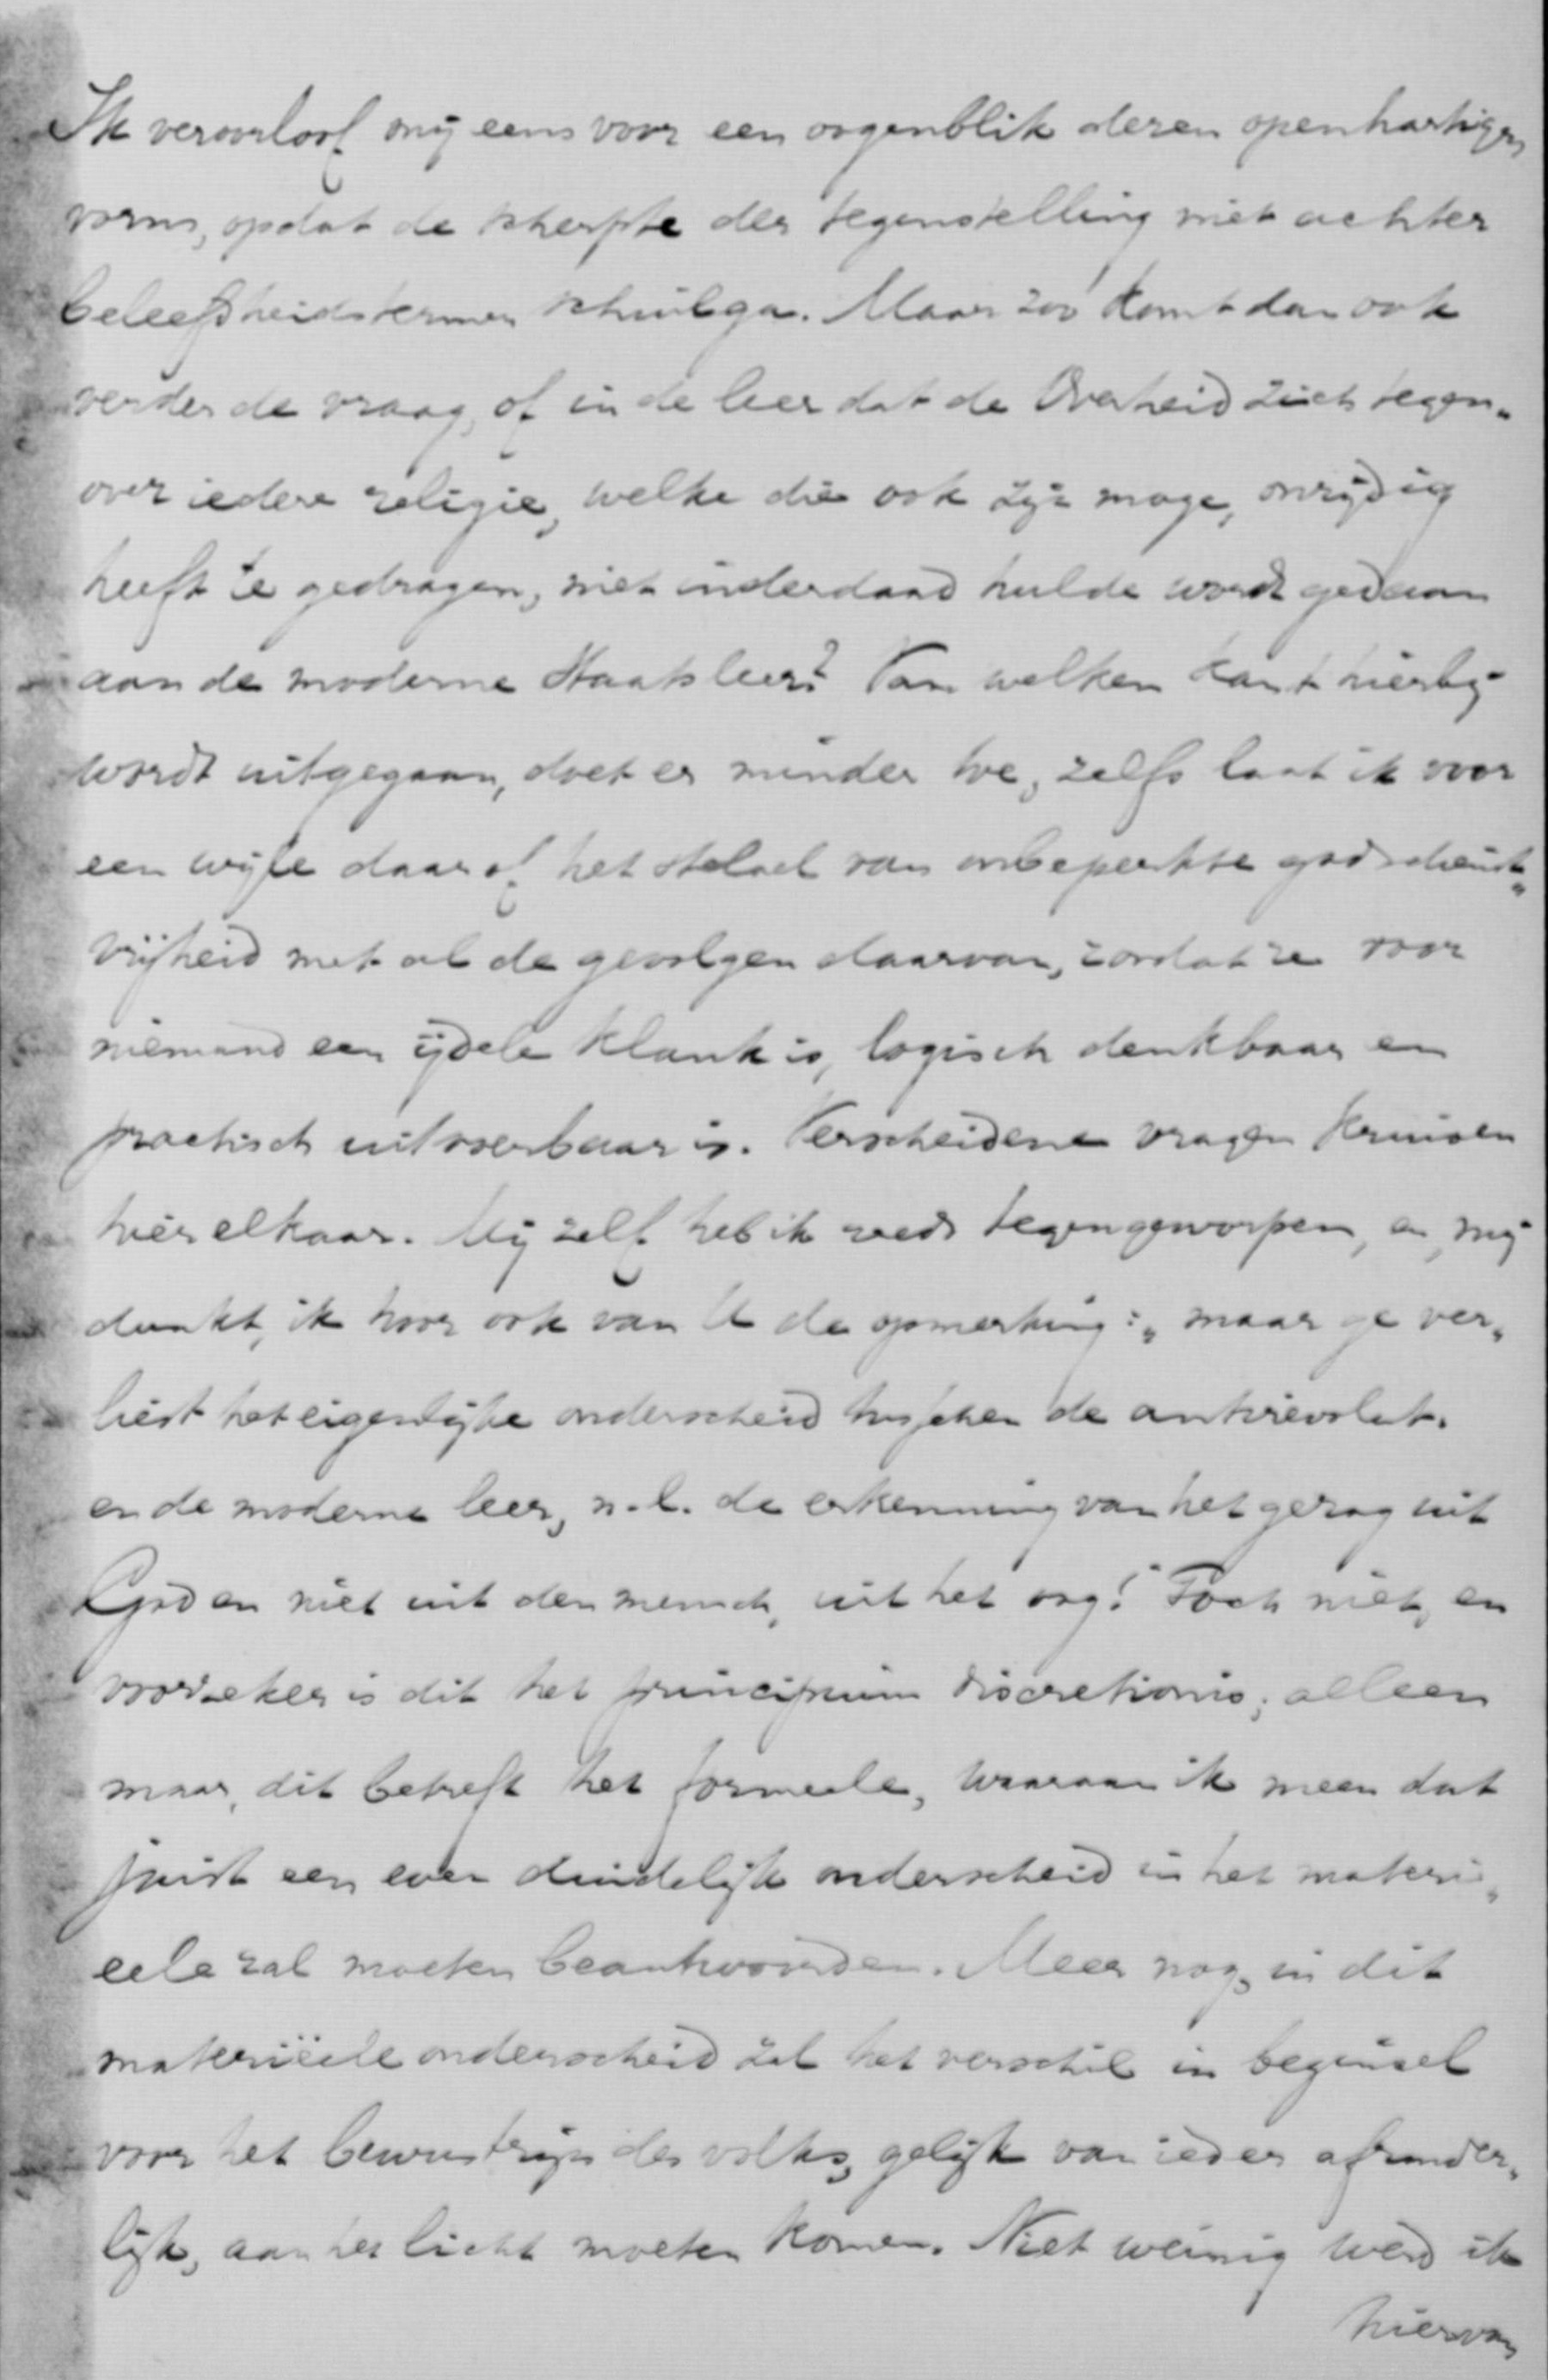 Ik veroorloof mij eens voor een oogenblik dezen openhartigen
vorm, opdat de scherpte der tegenstelling niet achter
beleefdheidstermen schuilga. Maar zoo komt dan ook
verder de vraag, of in de leer dat de Overheid zich tegen„
over iedere religie, welke die ook zijn moge, onzijdig
heeft te gedragen, niet inderdaad hulde wordt gedaan
aan de moderne Staatsleer? Van welken kant hierbij
wordt uitgegaan, doet er minder toe, zelfs laat ik voor
een wijle daar of het stelsel van onbeperkte godsdienst„
vrijheid met al de gevolgen daarvan, zoodat ze voor
niemand een ijdele klank is, logisch denkbaar en
practisch uitvoerbaar is. Verscheidene vragen kruisen
hier elkaar. Mij zelf heb ik reeds tegengeworpen, en, mij
dunkt, ik hoor ook van U de opmerking: „maar ge ver„
liest het eigenlijke onderscheid tusschen de antirevolut.
en de moderne leer, n.l. de erkenning van het gezag uit
God en niet uit den mensch, uit het oog!" Toch niet, en
voorzeker is dit het principium discretionis; alleen
maar, dit betreft het formeele, waaraan ik meen dat
juist een even duidelijk onderscheid in het materi„
eele zal moeten beantwoorden. Meer nog, in dit
materiëele onderscheid zal het verschil in beginsel
voor het bewustzijn des volks, gelijk van ieder afzonder„
lijk, aan het licht moeten komen. Niet weinig werd ik
hiervan